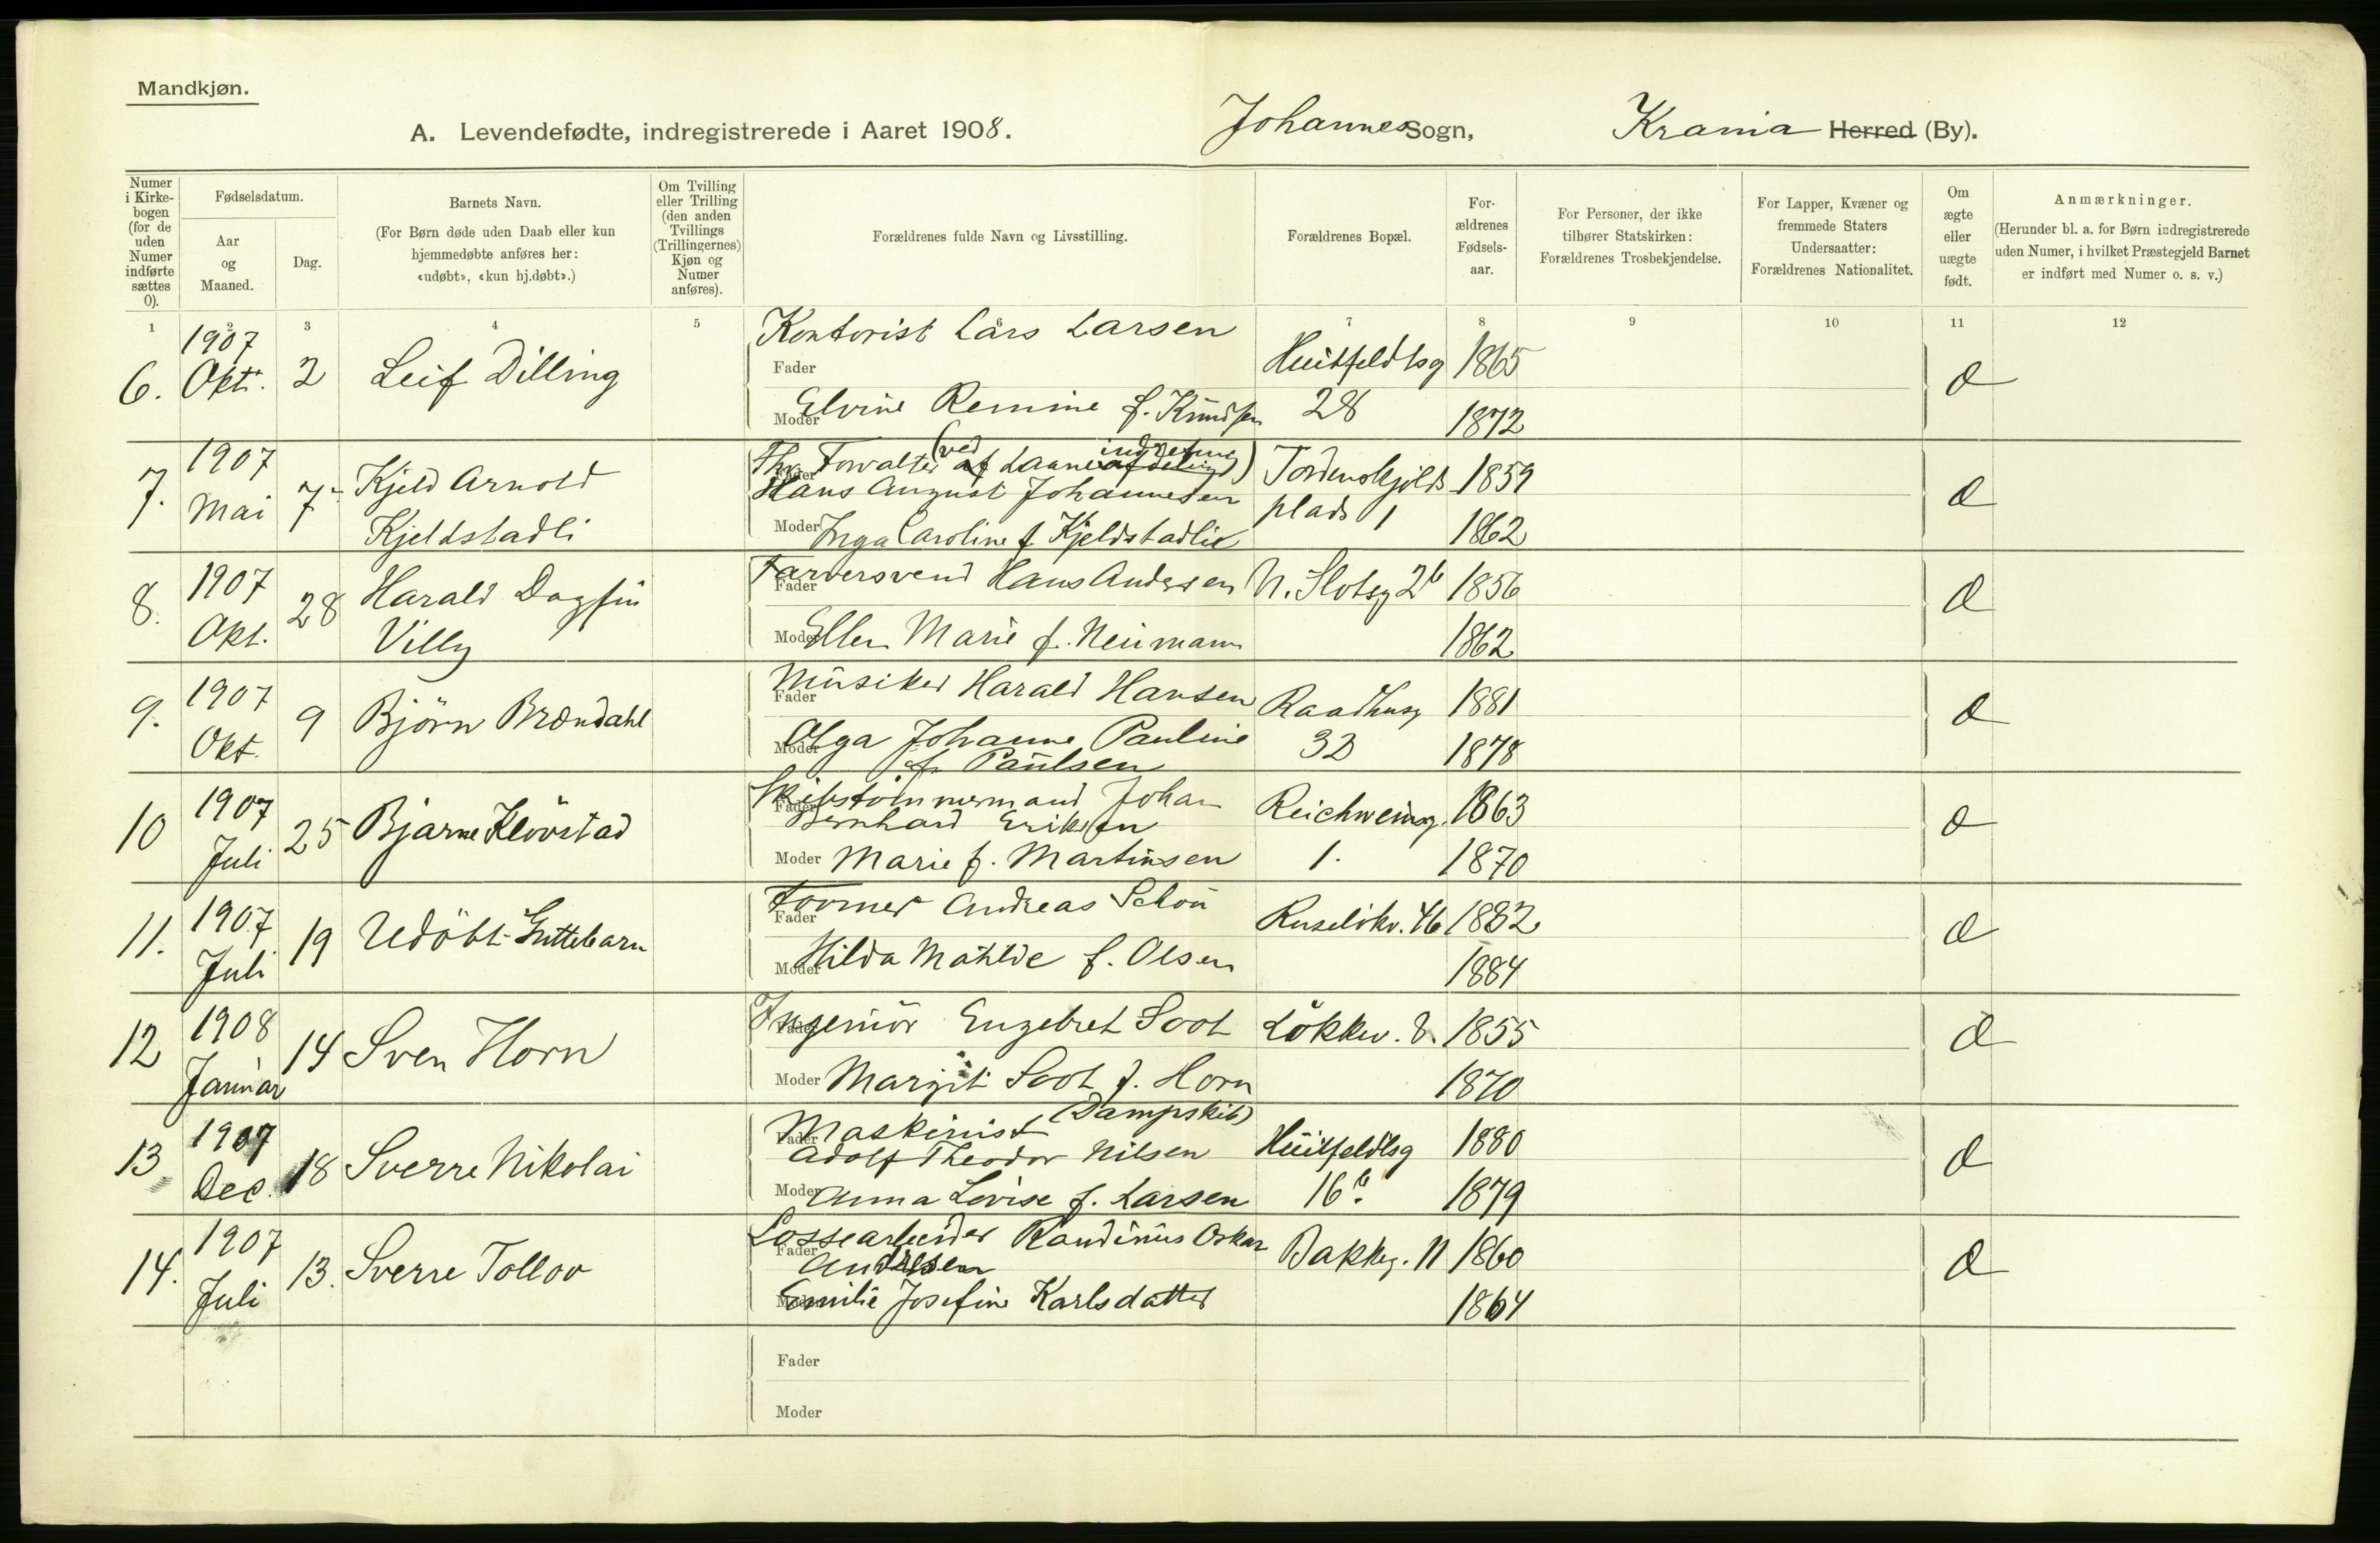 Mandkjøn.
A. Levendefødte, indregistrerede i Aaret 1908. Johannes Sogn, Krania Herred (By).
Numer i Kirkebogen (for de uden Numer indførte sættes 0).
Fødselsdatum.
Aar og Maaned.
Dag.
Barnets Navn.
(For Børn døde uden Daab eller kun hjemmedøbte anføres her: «udøbt», «kun hj.døbt».)
Om Tvilling eller Trilling (den anden Tvillings (Trillingernes) Kjøn og Numer anføres).
Forældrenes fulde Navn og Livsstilling.
Forældrenes Bopæl.
Forældrenes Fødselsaar.
For Personer, der ikke tilhører Statskirken: Forældrenes Trosbekjendelse.
For Lapper, Kvæner og fremmede Staters Undersaatter: Forældrenes Nationalitet.
Om ægte eller uægte født.
Anmærkninger.
(Herunder bl. a. for Børn indregistrerede uden Numer, i hvilket Præstegjeld Barnet er indført med Numer o. s. v.)
1 2 3 4 5 6 7 8 9 10 11 12
6. 1907 Okt. 2 Leif Dilling
Fader Kontorist Lars Larsen Huitfeldtsg 1865
Moder Elvine Remine f. Knudsen 28 1872
7. 1907 Mai 7 Kjeld Arnold Kjeldstadli
Fader Forvalter (ved af Laaneafdeling indretning) Hans August Johannesen Tordenskjolds 1859
Moder Inga Caroline f Kjeldstadlie plads 1 1862
8. 1907 Okt. 28 Harald Dagfin Villy
Fader Farversvend Hans Andersen N. Slotsg 2b 1856
Moder Ellen Marie f. Neumann 1862
9. 1907 Okt. 9 Björn Brændahl
Fader Musiker Harald Hansen Raadhusg 1881
Moder Olga Johanne Pauline f. Paulsen 32 1878
10 1907 Juli 25 Bjarne Klövstad
Fader Skibstömmermand Johan Bernhard Eriksen Reichweinsg. 1863
Moder Marie f. Martinsen 1. 1870
11. 1907 Juli 19 Udöbt Guttebarn
Fader Former Andreas Schou Ruselökv. 46 1882
Moder Hilda Matilde f. Olsen 1884
12 1908 Januar 14 Sven Horn
Fader Ingeniör Engebret Soot Lökkev. 8. 1855
Moder Margit Soot f. Horn 1870
13 1907 Dec. 18 Sverre Nikolai
Fader Maskinist (Dampskib) Adolf Theodor Nilsen Huitfeldtsg 1880
Moder Anna Lovise f. Larsen 16b. 1879
14. 1907 Juli 13. Sverre Tollov
Fader Lossearbeider Randinius Oskar Andresen Bakkeg. 11 1860
Moder Emilie Josefine Karlsdatter 1864
Fader
Moder